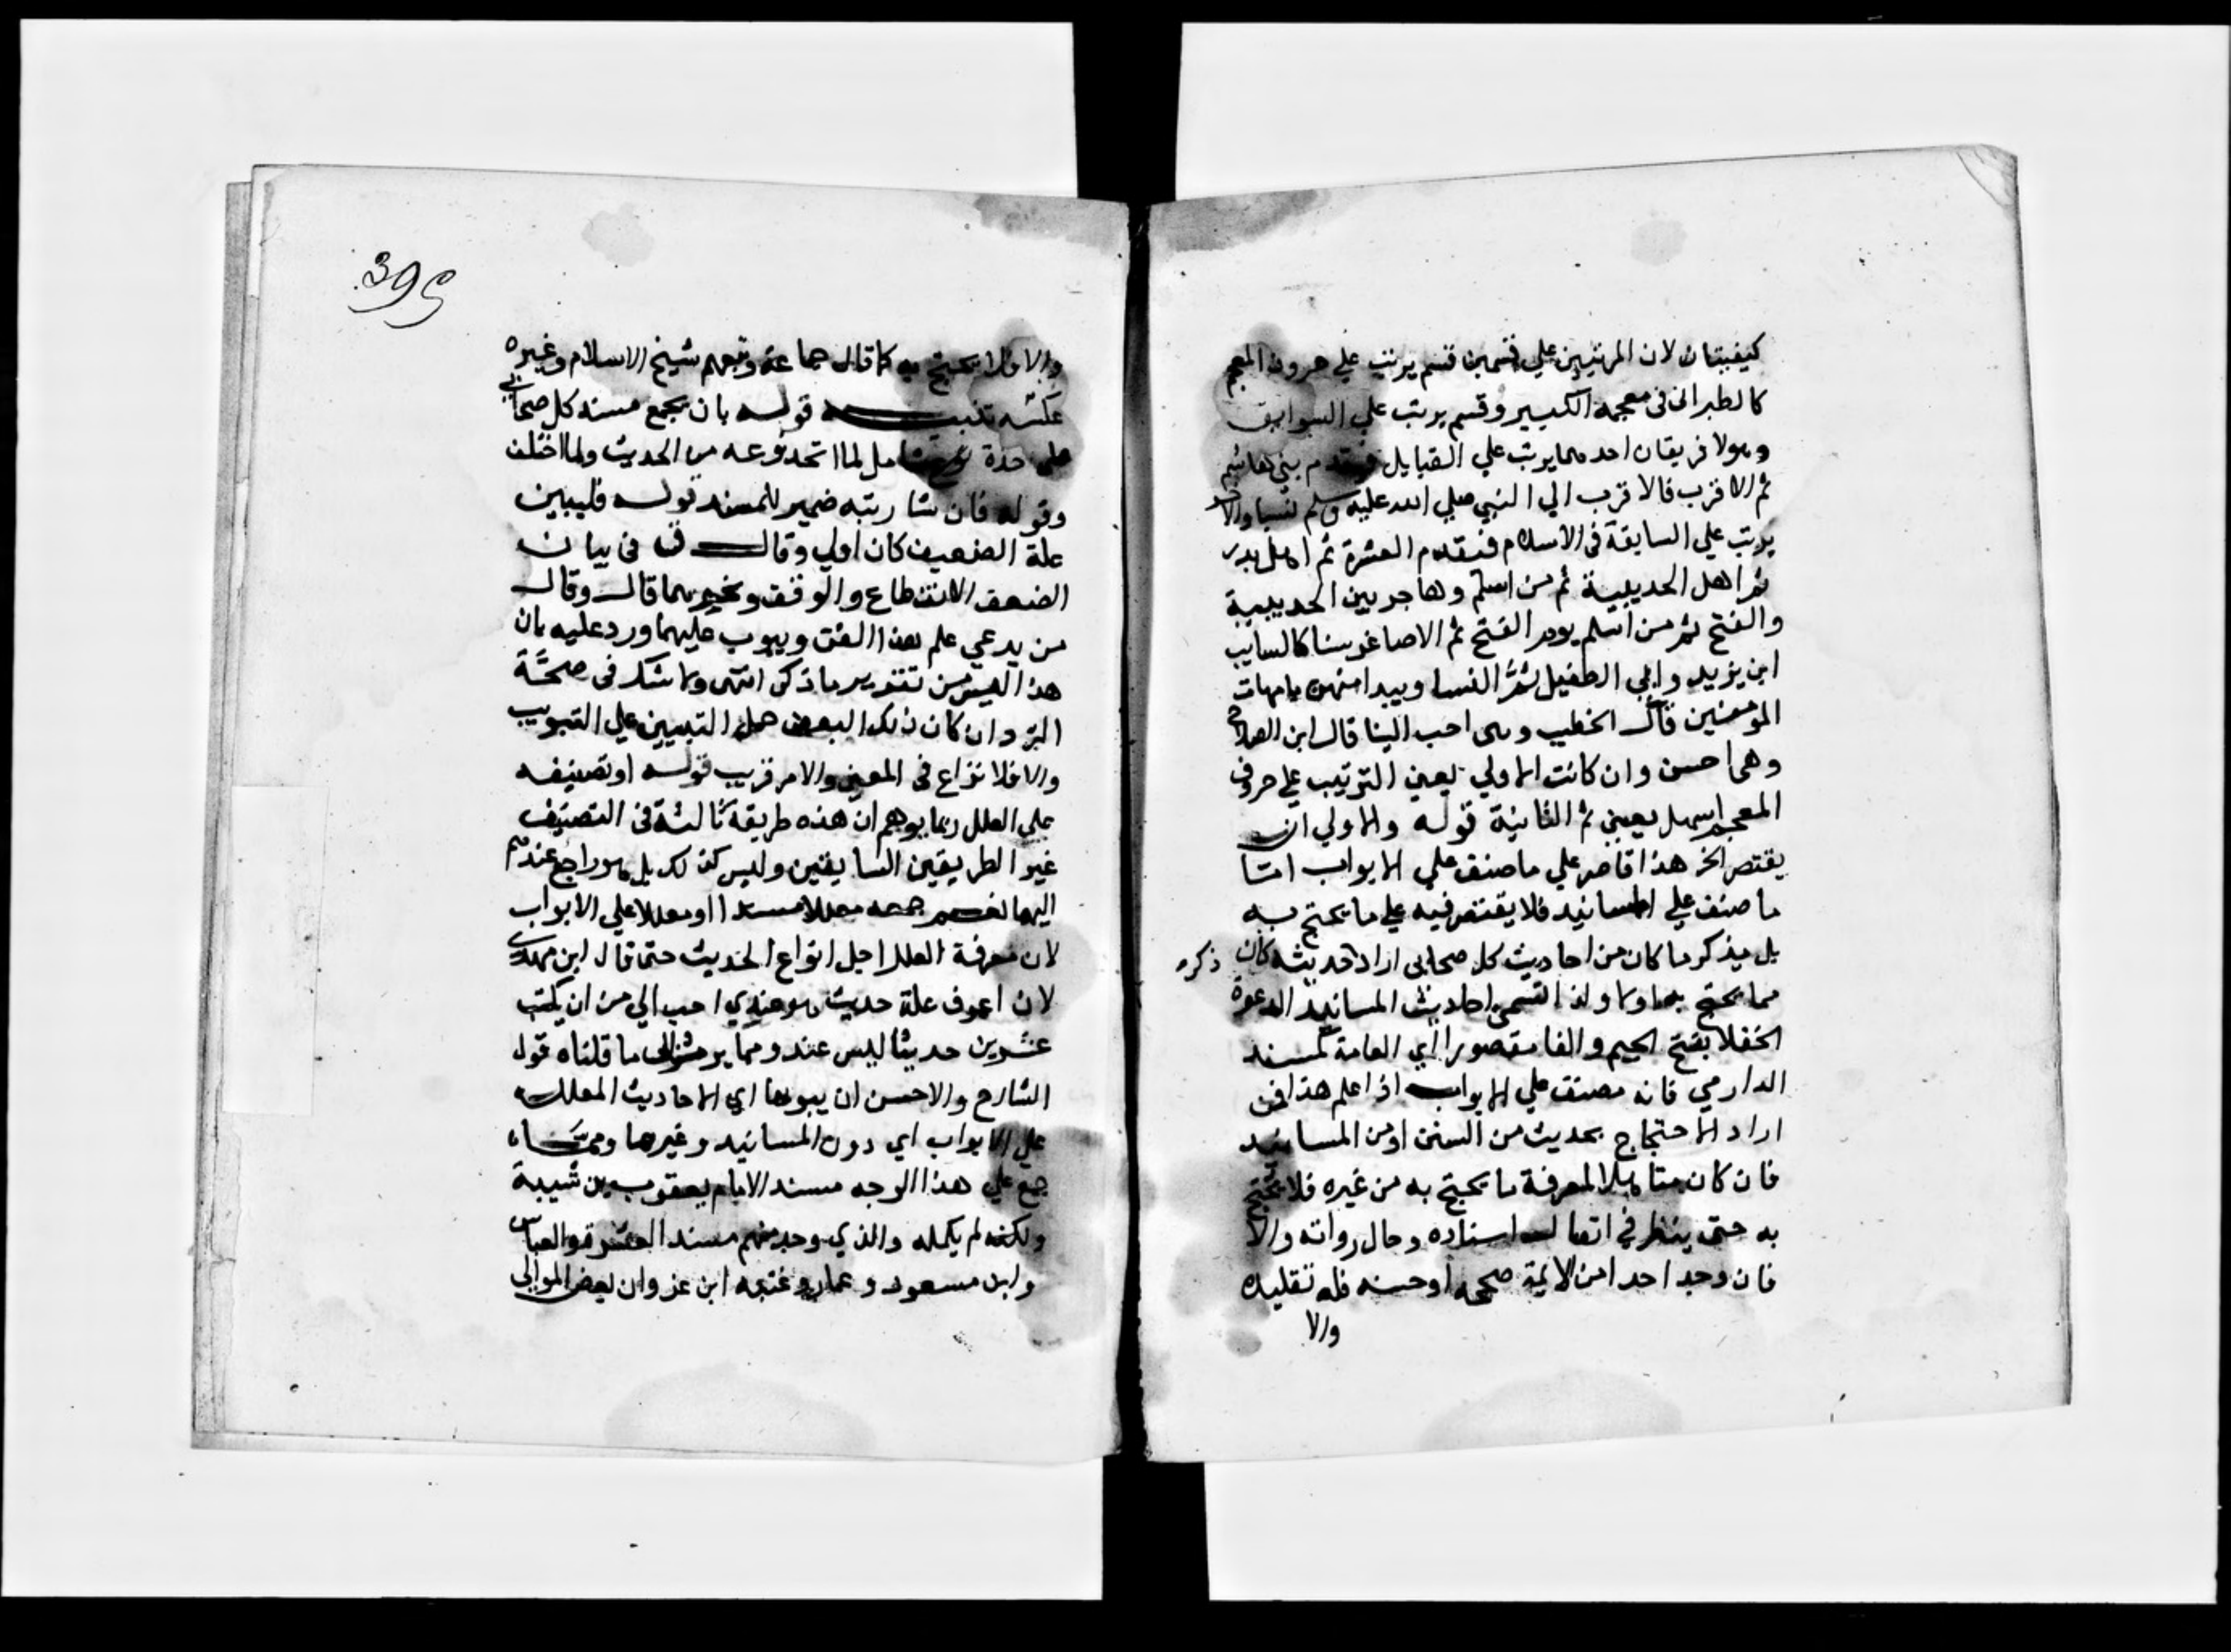 كيفيتان لان المرتبين علي قسمين قسم يرتب علي حروف المعجم
كالطبراني في معجمه الكبير وقسم يرتب علي السوابق
وهولا فريقان احدهما يرتب علي القبايل فيقدم بني هاشم
ثم الاقرب فالاقرب الي النبي صلي الله عليه وسلم نسبا والاخر
يرتب علي السابقة في الاسلام فيقدم العشرة ثم اهل بدر
ثم اهل الحديبية ثم من اسلم وهاجر بين الحديبية
والفتح ثم من اسلم يوم الفتح ثم الاصاغر سنا كالسايب
ابن يزيد وابي الطفيل ثم النسا ويبدا منهن بامهات
المومنين قال الخطيب وهي احب الينا قال ابن الصلاح
وهي احسن وان كانت الاولي يعني الترتيب علي حروف
المعجم اسهل يعني ثم الثانية قوله والاولي ان
يقتصر الخ هذا قاصر علي ما صنف علي الابواب اما
ما صنف علي المسانيد فلا يقتصر فيه علي ما يحتج به
بل يذكر ما كان من احاديث كل صحابي اراد حديثه كان ذكره
مما يحتج به اولا ولذا تسمي احاديث المسانيد الدعوة
الجفلا بفتح الجيم والفا مقصورا اي العامة كمسند
الدارمي فانه مصنف علي الابواب اذا علم هذا فمن
اراد الاحتجاج بحديث من السنن او من المسانيد
فان كان متاهلا لمعرفة ما يحتج به من غيره فلا يحتج
به حتي ينظر في اتصال اسناده وحال رواته والا
فان وجد احدا من الايمة صححه او حسنه فله تقليده
والا
395
والا فلا يحتج به كما قال جماعة وتبعهم شيخ الاسلام وغيره
عكسه تنبيه قوله بان يجمع مسند كل صحابي
علي حدة شامل لما اتحد نوعه من الحديث ولما اختلف
وقوله فان شا رتبه ضمير للمسند قوله فليبين
علة الضعيف كان اولي وقال ق في بيان
الضعف الانقطاع والوقف ونحوهما قال وقال
من يدعي علم هذا الفن ويبوب عليهما ورد عليه بان
هذا ليس من تقرير ما ذكر انتهي ولا شك في صحة
الرد وان كان ذلك البعض حمل التبيين علي التبويب
والا فلا نزاع في المعني والامر قريب قوله او تصنيفه
علي العلل ربما يوهم ان هذه طريقة ثالثة في التصنيف
غير الطريقين السابقين وليس كذلك بل هو راجع عندهم
اليهما جمعه معللا مسندا او معللا علي الابواب
لان معرفة العلل اجل انواع الحديث حتي قال ابن مهدي
لان اعرف علة حديث هو عندي احب الي من ان يكتب
عشرين حديثا ليس عند ومما يرشد الي ما قلناه قول
الشارح والاحسن ان يبوبها اي الاحاديث المعلله
علي الابواب اي دون المسانيد وغيرها
جمع علي هذا الوجه مسند الامام يعقوب بن شيبة
ولكنه لم يكمله والذي وجد منهم مسند العشرة والعباس
وابن مسعود وعمار وعتبه ابن غزوان بعض الموالي